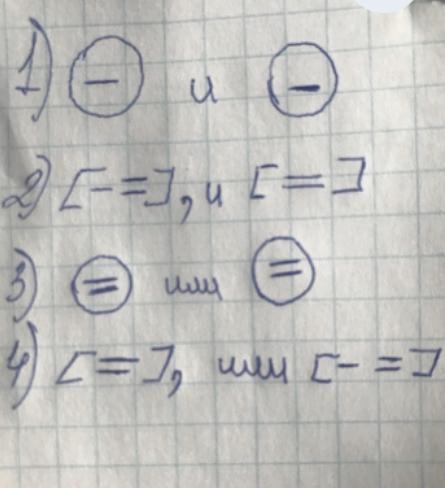 1) ⊖ и ⊖
2) [- =], и [ = ]
3) ⊜ или ⊜
4) [ = ], или [- = ]